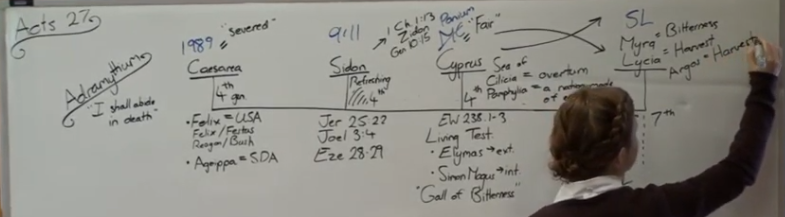 Acts 27
Adramyttium
"I shall abide
in death"
1989 = "severed"
Caesarea
4th
gen
• Felix = USA
Felix/Festus
Reagan/Bush
• Agrippa = SDA
9:11
Sidon
Refreshing
4th
Jer 25:22
Joel 3:4
Eze 28-29
1 Ch 1:13
Zidon
Gen 10:15
Panium
"Far"
Cyprus
4th
Sea of
Cilicia = overturn
Pamphylia = a nation made
of
EW 238.1-3
Living Test.
• Elymas → ext.
• Simon Magus → int.
"Gall of Bitterness"
SL
Myra = Bitterness
Lycia = Harvest
Argos = Harvest
7th